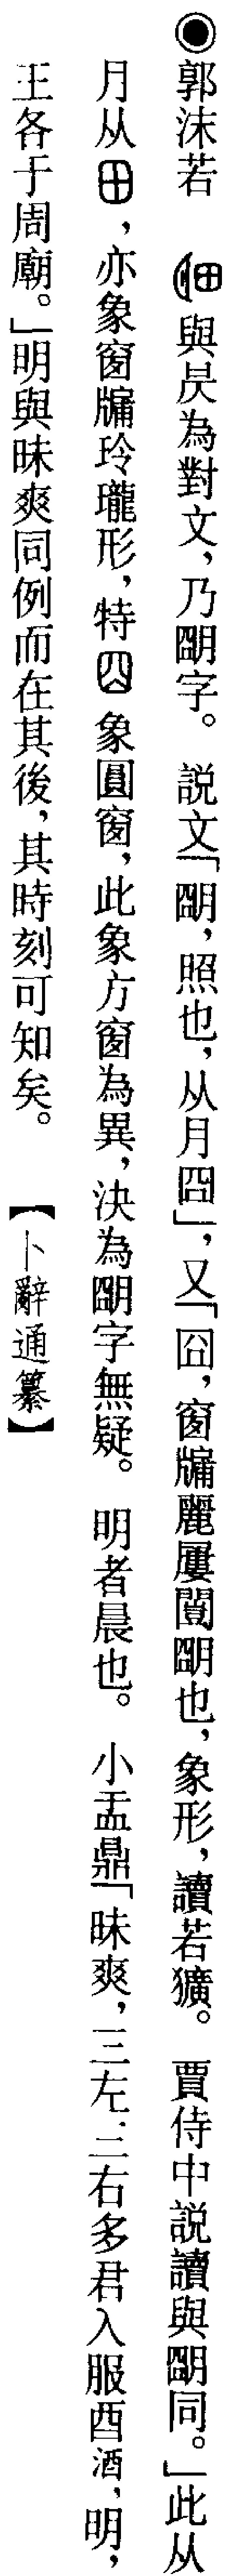 ◉郭沫若　與昃為對文，乃朙字。　説文「朙，照也，从月囧」，又「囧，窗牖麗廔闓朙也，象形，讀若獷。　賈侍中説讀與朙同。」此从
月从，亦象窗牖玲瓏形，特象圓窗，此象方窗為異，決為朙字無疑。　明者晨也。　小盂鼎「昧爽，三左三右多君入服酉酒，明，
王各于周廟。」明與昧爽同例而在其後，其時刻可知矣。　【卜辭通纂】